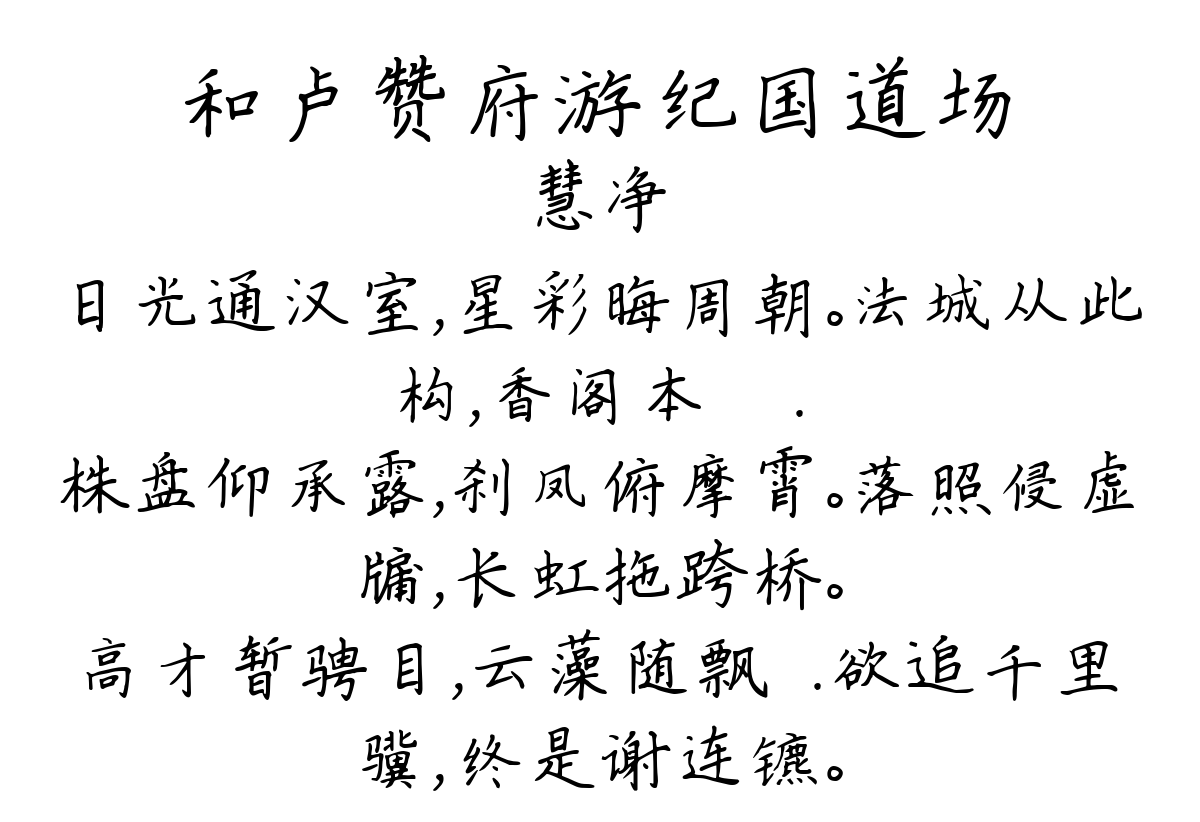 和卢赞府游纪国道场
慧净
日光通汉室,星彩晦周朝。法城从此
构,香阁本 .
株盘仰承露,刹凤俯摩霄。落照侵虚
牖,长虹拖跨桥。
高才暂骋目,云藻随飘 .欲追千里
骥,终是谢连镳。